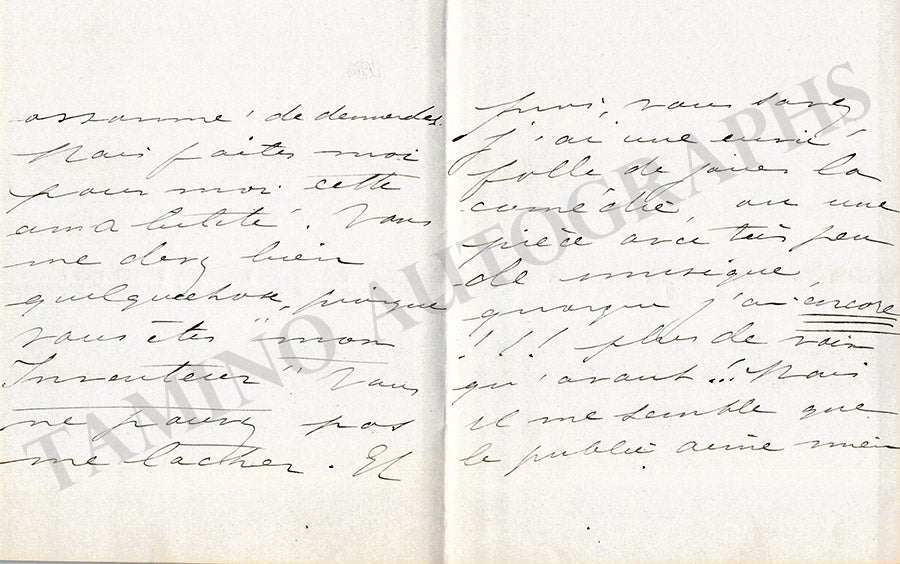 assommé de demandes.
Mais faites moi
pour moi cette
amabilité. Vous
me devez bien
quelquechose, puisque
vous êtes "mon
Inventeur" Vous
ne pouvez pas
me lâcher. Et
puis, vous savez
j'ai une envie
folle de jouer la
comédie, ou une
pièce avec très peu
de musique
quoique j'ai encore
!!! plus de voix
qu'avant!! Mais
il me semble que
le public aime mieux
TAMINO AUTOGRAPHS